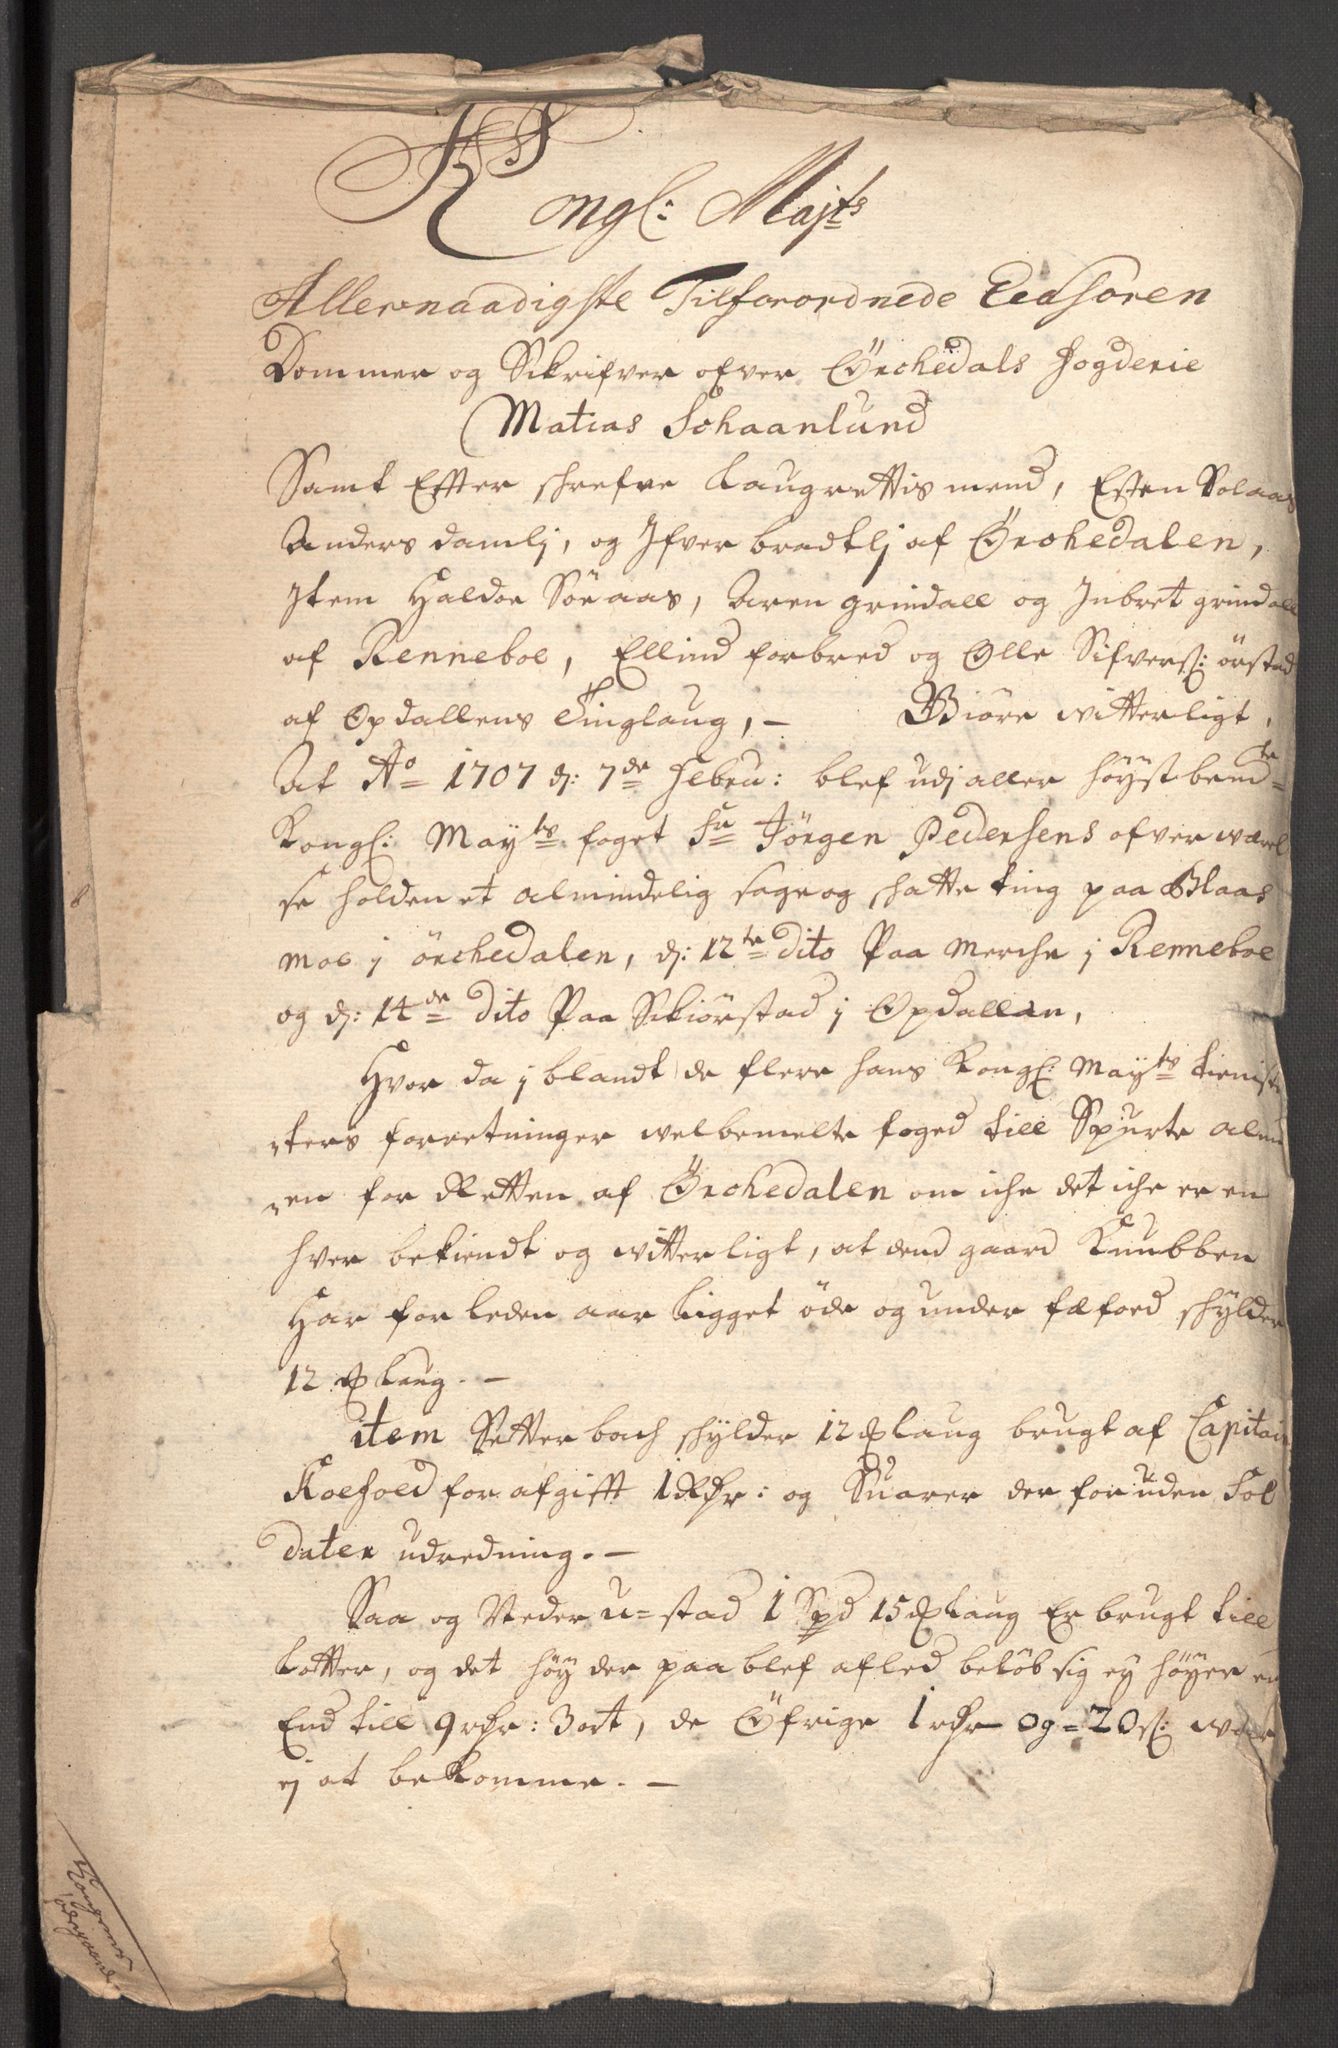 Kongl: Maj:ts
Allernaadigste Tilforordnede Eedsoren
Dommer og Skrifver ofver Örchedals fogderie
Matias Schaanlund
Samt Effter schrefne Laugrettis mend, Esten Solaas
Anders damlj, og Ifver bradtlj af Örchedalen,
Item Haldor Söraas, Aren grindall og Inbret grindall
af Renneboe, Ellind forbred og Olle Sifversß: örstad
af Opdallens Tinglaug, – Giöre witterligt,
At A:o 1707 d: 7de Febru: blef udj aller höystbemte
Kongl: Mayts foget Sr Jörgen Pedersens ofverwærel
se holden et almindelig sage og schatte ting paa Blaas
moe j örchedalen, d: 12te dito Paa Merche j Renneboe
og d: 14de dito Paa Skiörstad j Opdallen,
Hvor da jblandt de flere hans Kongl: Mayts tieniste
rters forretninger welbemelte foged till Spurte almu
en for Retten af Örchedalen om iche det iche er en
hver bekiendt og witterligt, at dend gaard Knubben
Har for leden aar ligget öde og under fæfoed schylder
12 ℔ Laug. –
item Setter bach schylder 12 ℔ laug brugt af Capitain
Koefoed for afgifft 1 Rdr: og Suarer der for uden Sol
daten udredning. –
Saa og Nedre u=stad 1 Spd 15 ℔ laug Er brugt till
kotter, og det höy der paa blef afled belöb sig ey höyere
End till 9 rdr: 3 ort, de Öfrige 1 rdr og = 20 ß: war
ej at bekomme. –
Kongens
ödegaarde